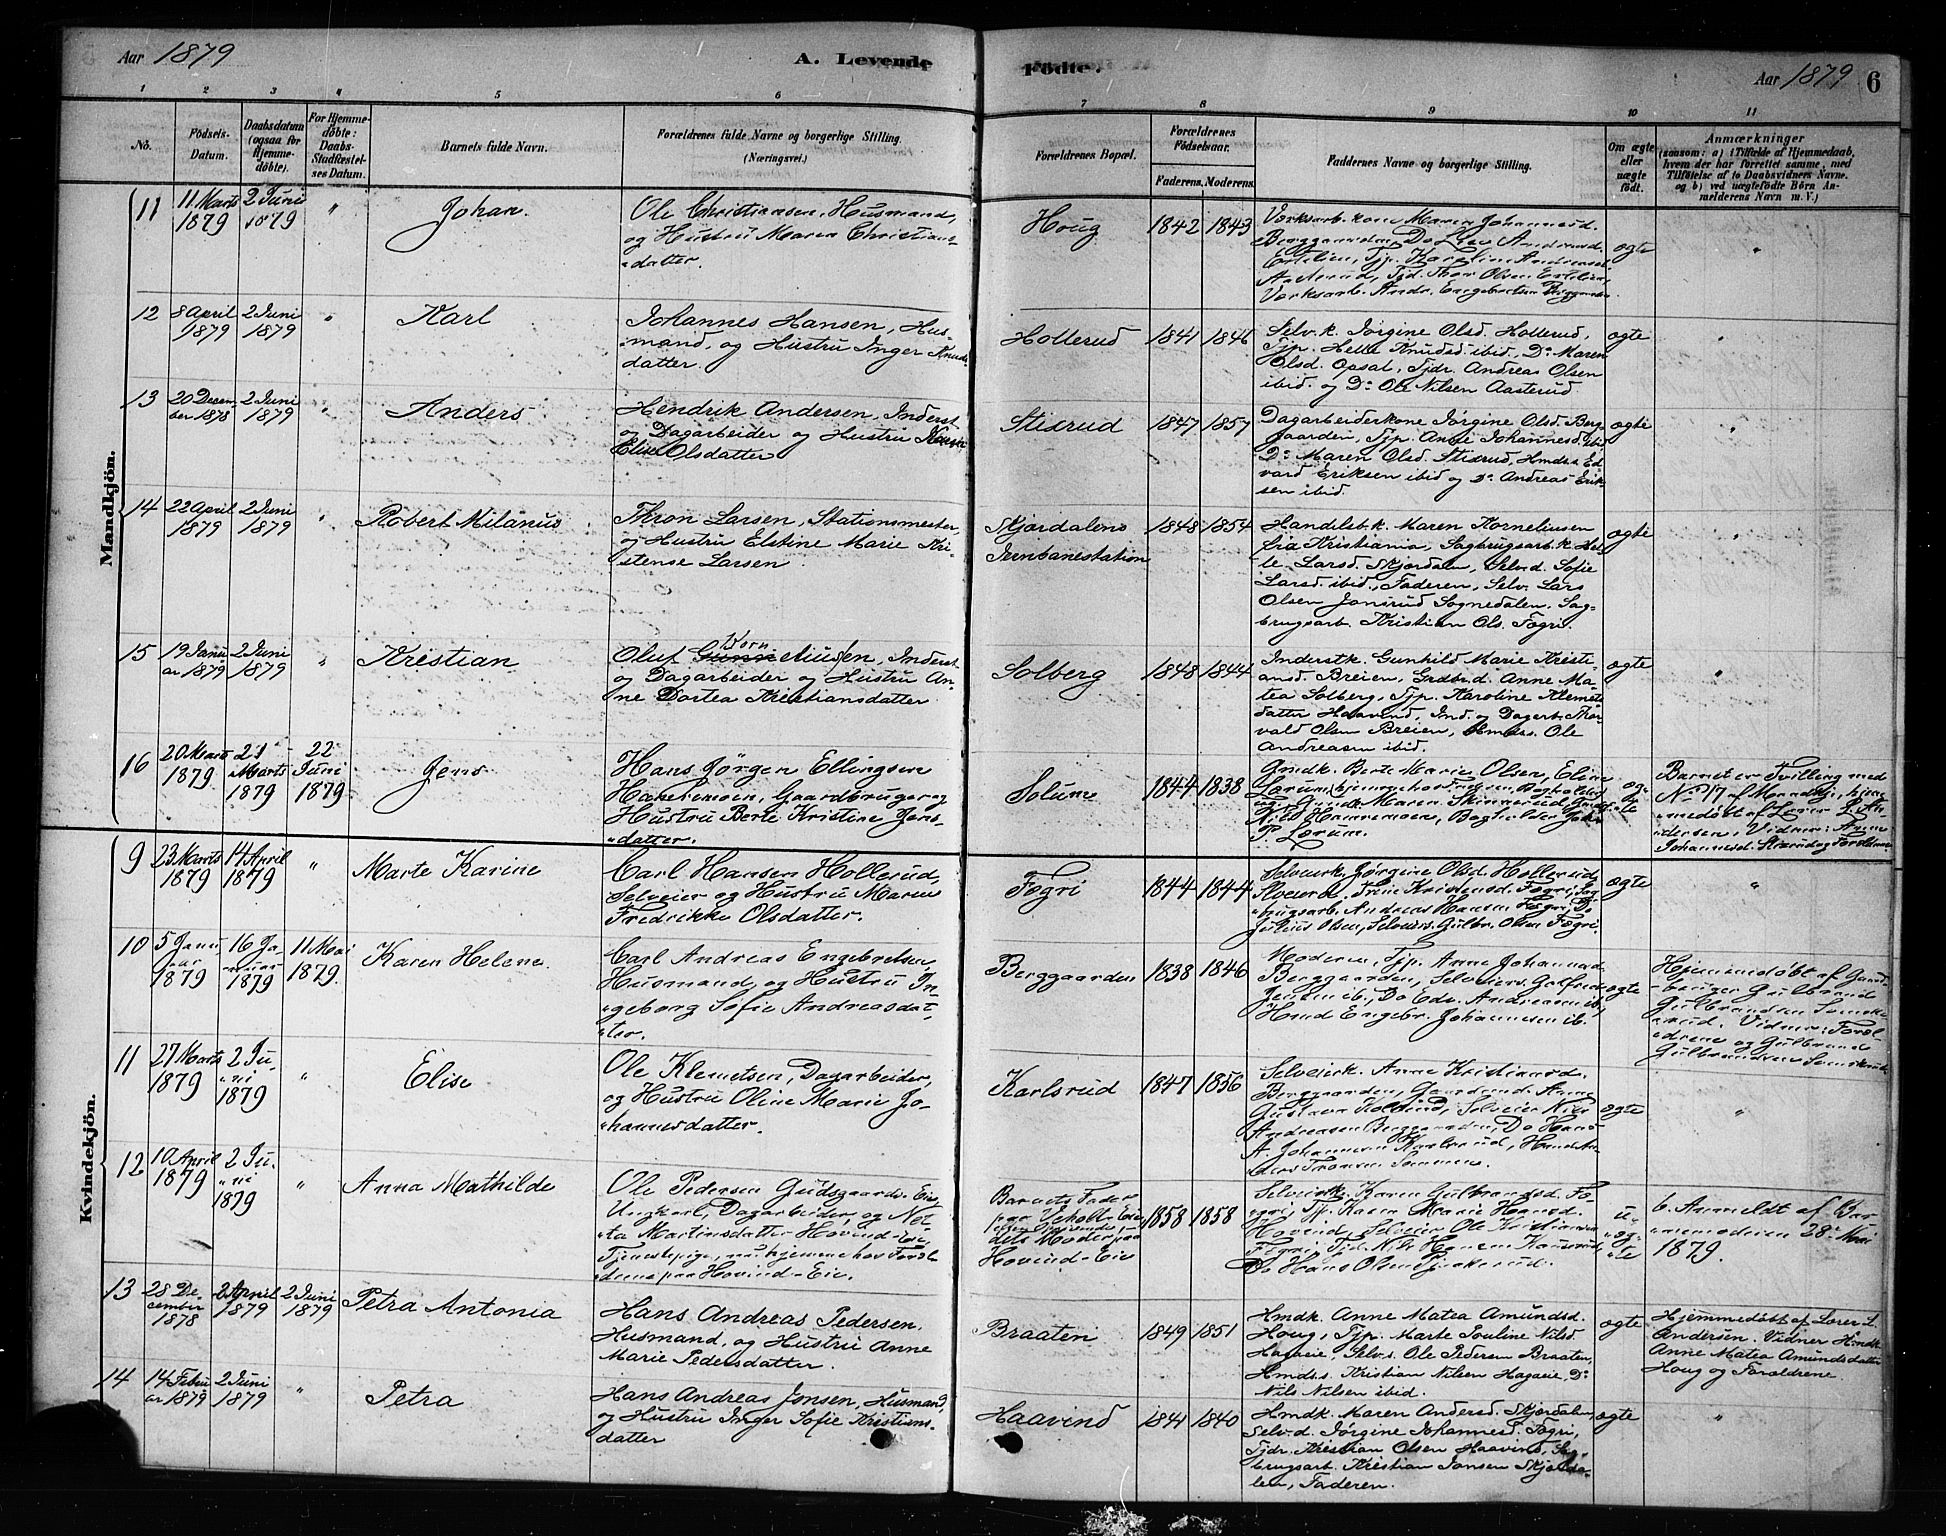 Aar 1879
A. Levende
Födte.
Aar 1879 6
1 2 3 4 5 6 7 8 9 10 11
No.
Födsels-
Datum.
Daabsdatum
(ogsaa for
Hjemme-
döbte).
For Hjemme-
döbte:
Daabs-
Stadfæstel-
ses Datum.
Barnets fulde Navn.
Forældrenes fulde Navne og borgerlige Stilling.
(Næringsvei.)
Forældrenes Bopæl.
Forældrenes
Födselsaar.
Faderens. Moderens.
Faddernes Navne og borgerlige Stilling.
Om ægte
eller
uægte
födt.
Anmærkninger
(saasom: a) i Tilfælde af Hjemmedaab,
hvem der har forrettet samme, med
Tilföielse af to Daabsvidners Navne.
og b) ved uægtefödte Börn An-
melderens Navn m. V.)
Mandkjön.
11
11 Marts
1879
2 Juni
1879
"
Johan.
Ole Christiansen, Husmand,
og Hustru Maria Christians-
datter.
Houg
1842 1843
Værksarb. kone Maren Johannesd.
ægte
"
12
8 April
1879
2 Juni
1879
"
Karl
Johannes Hansen, Hus-
mand, og Hustru Inger Knuds-
datter
Hollerud
1841 1846
Selv.k. Jörgine Olsd. Hollerud,
Tjp. Helle Knudsd. ibid. Do Maren
Olsd. Opsal, Tjdr. Andreas Olsen
ibid. og Do Ole Nilsen Aasterud
ægte
"
13
20 Decem-
ber 1878
2 Juni
1879
"
Anders
Hendrik Andersen, Inderst
og Dagarbeider og Hustru Karen
Elise Olsdatter
Stixrud
1847 1857
Dagarbeiderkone Jörgine Olsd. Berg-
gaarden, Tjp. Anne Johannesd. ibid
Do Maren Olsd. Stixrud, Hmds.s. Ed-
vard Eriksen ibid og Do Andreas Erik-
sen ibid.
ægte
"
14
22 April
1879
2 Juni
1879
"
Robert Milanus
Thron Larsen, Stationsmester,
og Hustru Elstine Marie Kri-
stense Larsen
Skjærdalens
Jernbanestation
1848 1854
Handelsb.k. Maren Korneliusen
fra Kristiania, Sagbrugsarb.k. Hel-
le Larsd. Skjærdalen, Selv.d. Sofie
Larsd. ibid., Faderen, Selv. Lars
Olsen Jonsrud Sognedalen. Sag-
brugsarb. Kristian Ols. Fægri.
ægte
"
15
19 Janu-
ar 1879
2 Juni
1879
"
Kristian
Korn
Oluf eliusen, Inderst
og Dagarbeider og Hustru An-
ne Dortea Kristiansdatter
Solberg
1848 1844
Inderstk. Gunhild Marie Kristi-
ansd. Breien, Grdbr.d. Anne Ma-
tea Solberg, Tjp. Karoline Klemets-
datter Haavind, Ind. og Dagarb. Thor-
vald Olsen Breien, Hmds.s. Ole
Andreasen ibid.
ægte
"
16
20 Marts
1879
21
Marts
1879
22
Juni
1879
Jens
Hans Jörgen Ellingsen
Hannemoen, Gaardbruger og
Hustru Berte Kristine Jens-
datter.
Solum
1844 1838
Gmdk. Berte Marie Olsen, Eline
Lorum, hjemme hos
Maren Skinnerud
Nils Hannemoen, Bogholder
P. Lorum.
æg-
te
Barnet er Tvilling med
No 17 af Mandkj., hjem-
medöbt af Lærer L. An-
dersen. Vidner: Anne
Johannesd. og Forældrene
Kvindekjön.
9
23 Marts
1879
14 April
1879
"
Marte Karine
Carl Hansen Hollerud,
Selveier og Hustru Maren
Fredrikke Olsdatter.
Fægri
1844 1844
Selveierk. Jörgine Olsd. Hollerud,
Selveierd. Trine Kristensd. Fægri, Sag-
brugsarb. Andreas Hansen Fægri, Do
Julius Olsen, Selveiers. Gulbr. Olsen Fægri.
ægte
"
10
5 Janu-
ar
1879
16 Ja-
nuar
1879
11 Mai
1879.
Karen Helene.
Carl Andreas Engebretsen,
Husmand, og Hustru In-
geborg Sofie Andreasdat-
ter.
Berggaarden
1838 1846
Moderen, Tjp. Anne Johannesd.
Berggaarden, Selveiers.
Jensen ib., Do Edv. Andreasen ib.,
Hmd Engebr. Johannesen ib.
ægte
Hjemmedöbt af Gaard-
bruger Gulbrand
Gulbrandsen
Vidner: Foræl-
drene og Gulbrand
Gulbrandsen
11
27 Marts
1879
2 Ju-
ni
1879
"
Elise
Ole Klemetsen, Dagarbeider,
og Hustru Oline Marie Jo-
hannesdatter.
Karlsrud
1847 1856
Selveierk. Anne Kristiansd.
Berggaarden,
Selveier Nils
Andreasen Berggaarden, Do Hans
A. Johannesen Karlsrud,
ægte
"
12
10 April
1879
2 Ju-
ni
1879
"
Anna Mathilde
Ole Pedersen Gudsgaards-Eie,
Ungkarl, Dagarbeider, og Net-
ta Martinsdatter Hovind-Eie,
Tjenestepige, nu hjemme hos Foræl-
drene paa Hovind-Eie.
Barnets Fader
paa Veholt-Eie
dets Moder paa
Hovind-Eie
1858 1858
Selveierk. Karen Gulbrandsd. Fæ-
gri, Tjp. Karen Marie Hansd.
Hovind, Selveier Ole Kristiansen
Fægri, Tjd. Nils Hansen
Do Hans Olsen
u-
æg-
te
b. Anmeldt af Bar-
nemoderen 28de Mai
1879.
13
28 De-
cember
1878
2 April
1879
2 Juni
1879
Petra Antonia
Hans Andreas Pedersen,
Husmand, og Hustru Anne
Marie Pedersdatter.
Braaten
1849 1851
Hmdk. Anne Matea Amundsd.
Houg, Tjp. Marte Pouline Nilsd
Hagaeie, Selv.s. Ole Pedersen Braaten,
Hmds.s. Kristian Nilsen Hagaeie, Do
Nils Nilsen ibid.
ægte
Hjemmedöbt af Lærer L.
Andersen. Vidner Hmdk.
Anne Matea Amundsdatter
Houg og Forældrene.
14
14 Febru-
ar 1879
2 Juni
1879
"
Petra
Hans Andreas Jonsen, Husmand,
og Hustru Inger Sofie Kristians-
datter
Haavind
1841 1840
Hmdk. Maren Andersd. Skjærdalen,
Selv.d. Jörgine Johannesd. Fægri,
Tjdr. Kristian Olsen Haavind, Sag-
brugsarb. Kristian Jonsen Skjærda-
len, Faderen.
ægte
"